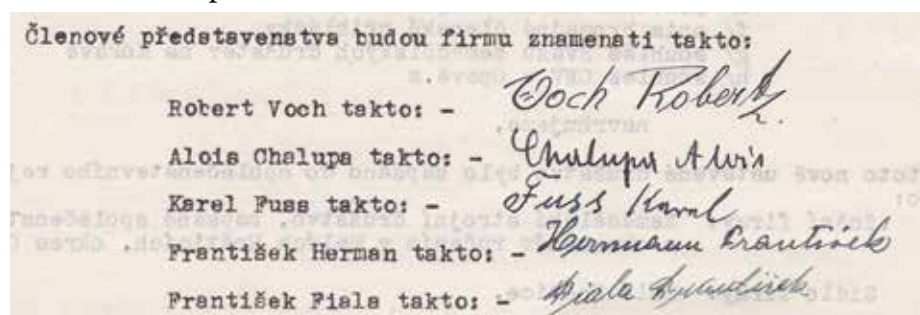 Členové představenstva budou firmu znamenati takto:
Robert Voch takto: - Voch Robert
Alois Chalupa takto: - Chalupa Alois
Karel Fuss takto: - Fuss Karel
František Herman takto: - Hermann František
František Fiala takto: - Fiala František